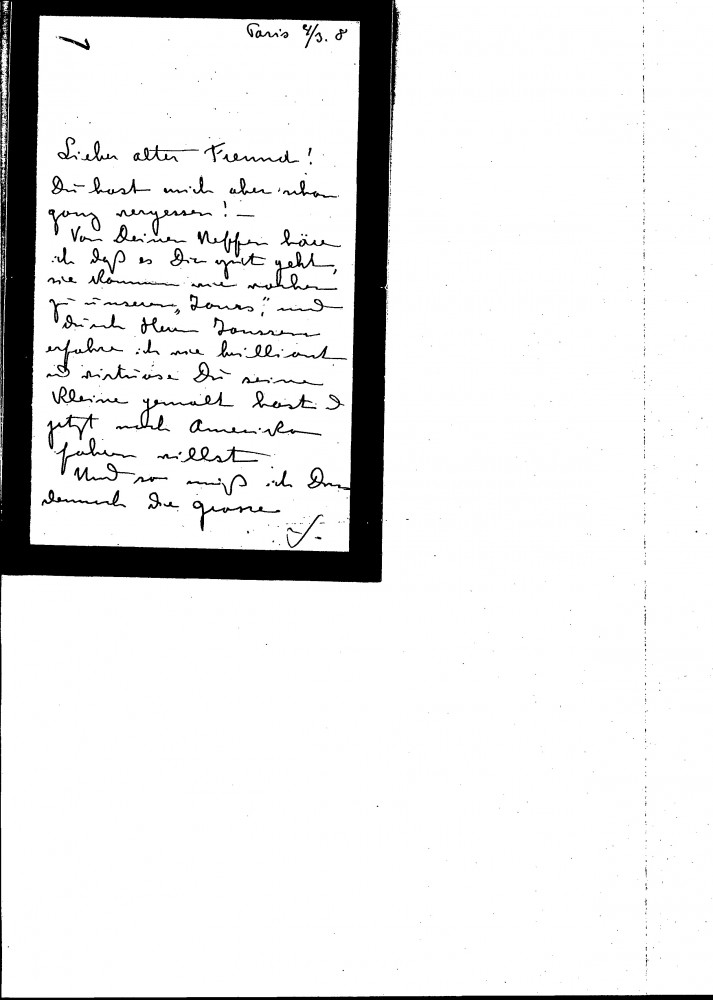 Paris 4/3. 8
Lieber alter Freund!
Du hast mich aber schon
ganz vergessen! —
Von Deinen Neffen höre
ich daß es Dir gut geht,
sie kommen wie
zu unseren „Jours", und
durch Herrn Janssen
erfahre ich wie brilliant
und virtuose Du seine
Kleine gemalt hast &
jetzt nach Amerika
fahren willst
Und so muß ich Dir
dennoch die grosse